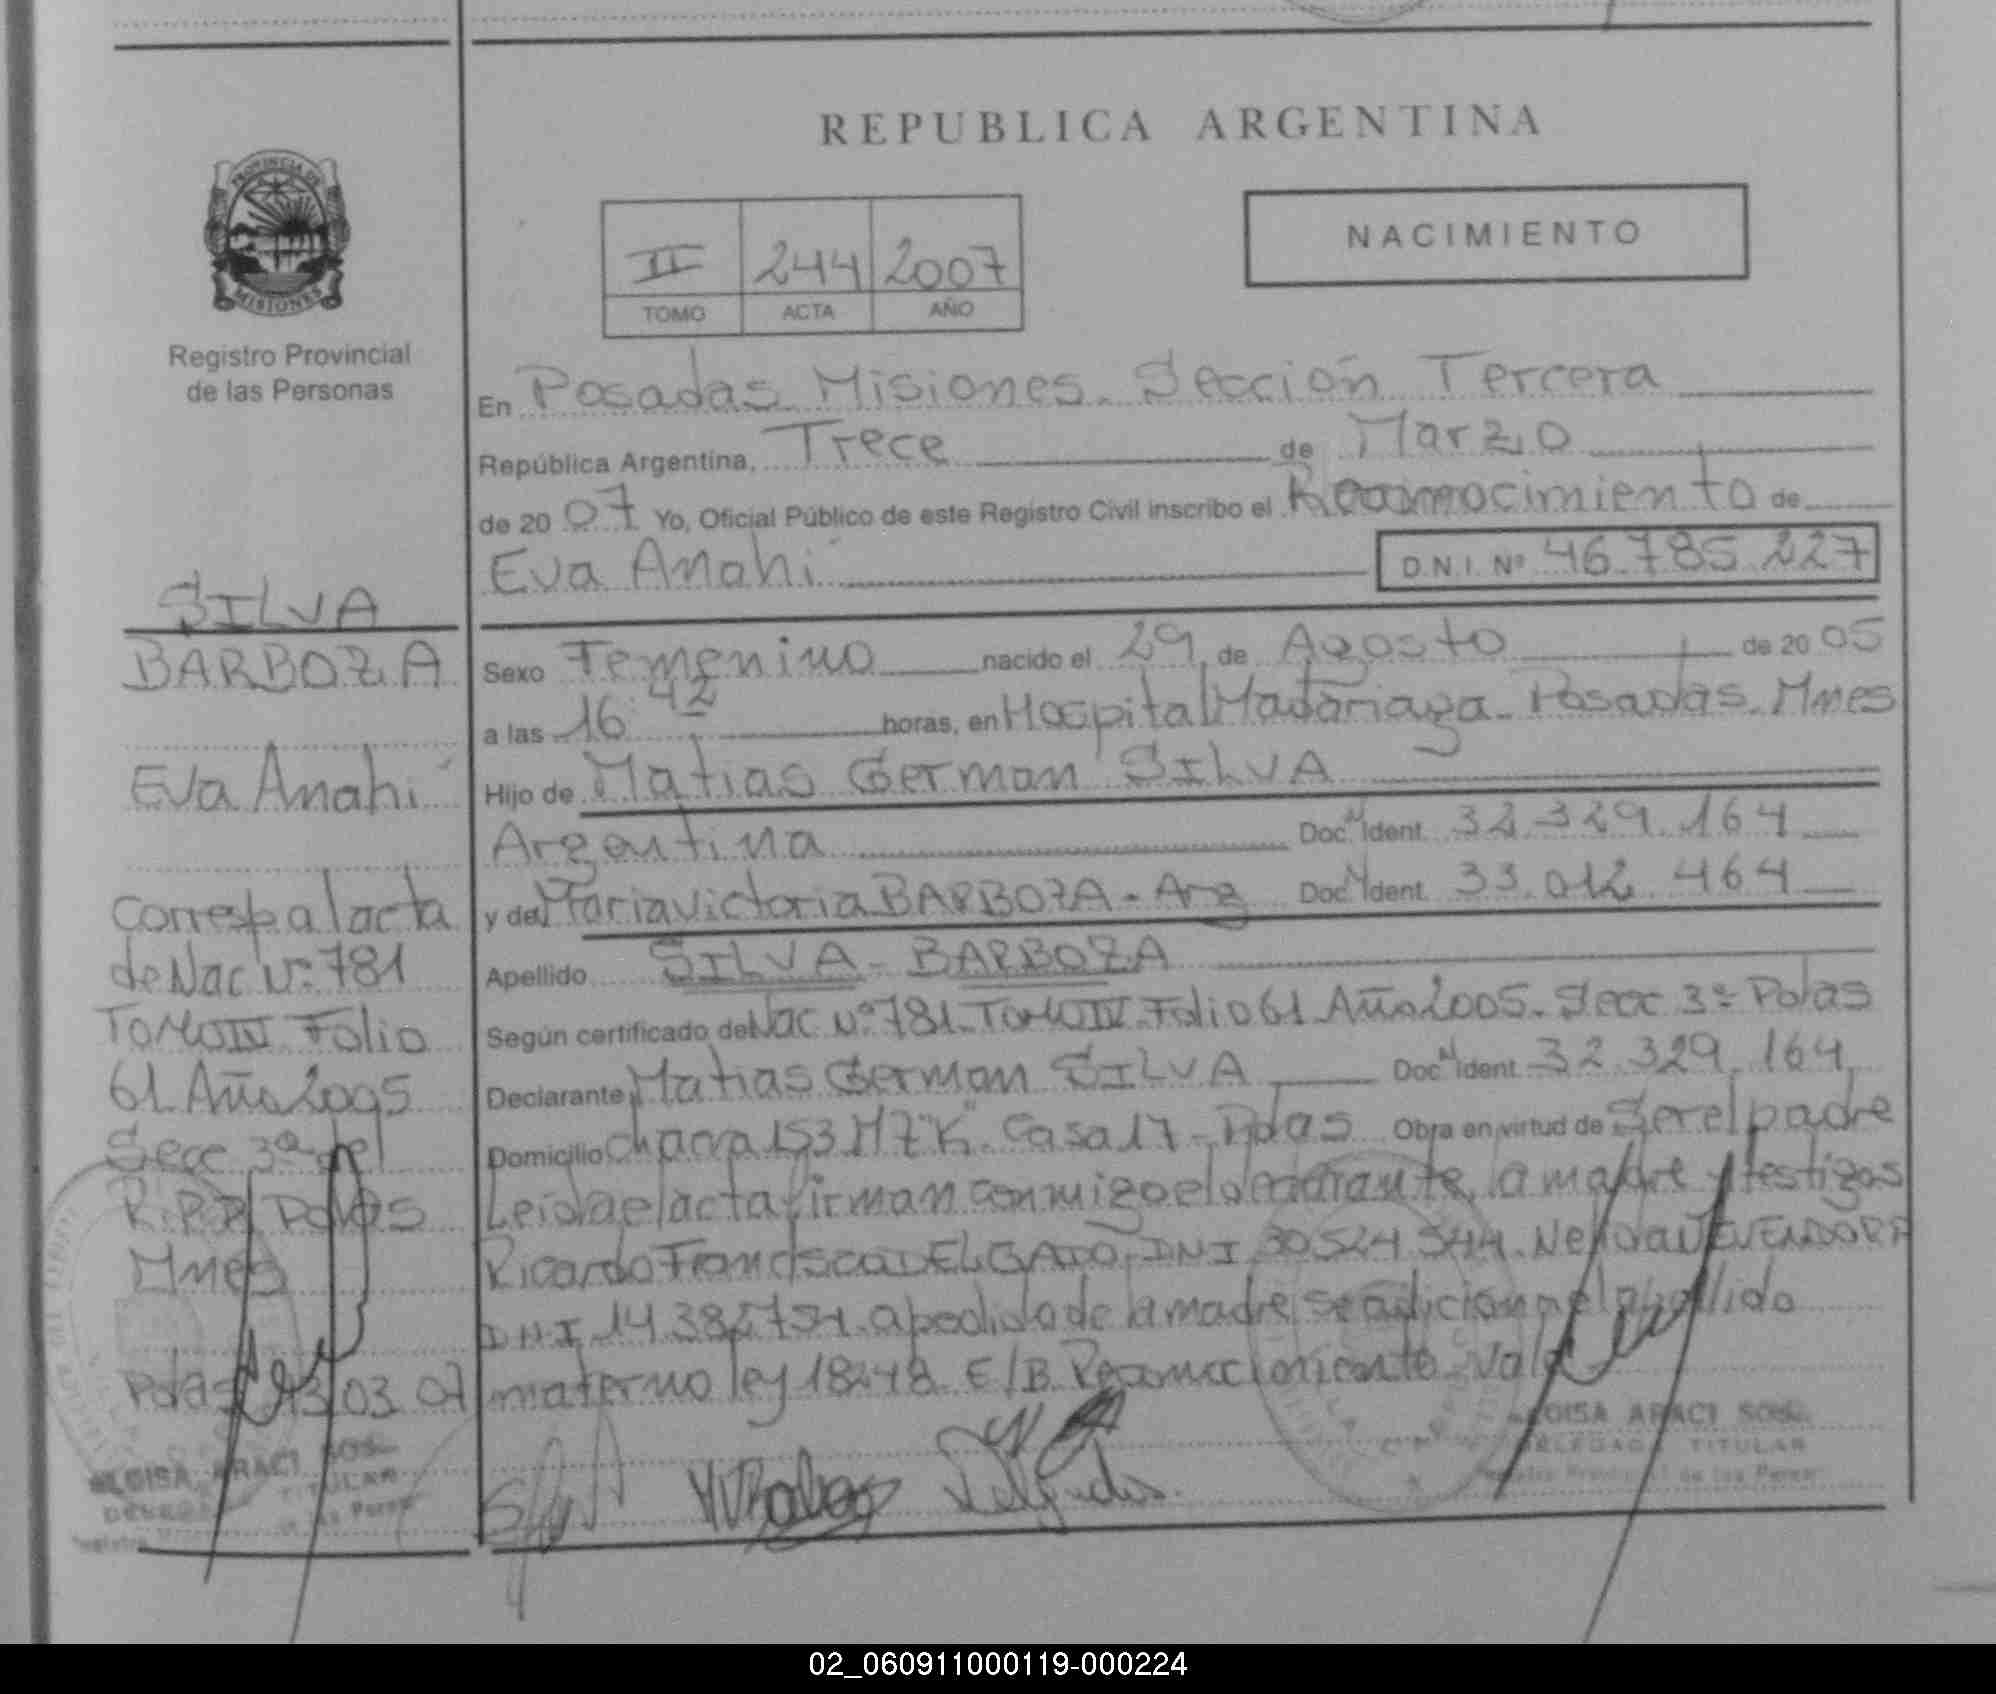 REPUBLICA ARGENTINA
PROVINCIA DE
MISIONES
Registro Provincial
de las Personas
II 244 2007
TOMO ACTA AÑO
NACIMIENTO
En Posadas Misiones. Sección Tercera
República Argentina, Trece de Marzo
de 20 07 Yo, Oficial Público de este Registro Civil inscribo el Reconocimiento de
Eva Anahí
D.N.I. Nº 46.785.227
SILVA
BARBOZA
Eva Anahí
Corresp al acta
de Nac Nº 781
Tomo IV Folio
61 Año 2005
Secc 3ª del
R.P.P. Pdas
Mnes
Pdas 13 03 07
Sexo Femenino nacido el 29 de Agosto de 20 05
a las 16 42 horas, en Hospital Madariaga. Posadas. Mnes
Hijo de Matias German SILVA
Argentina Doc. Ident. 32.329.164
y de Maria Victoria BARBOZA - Arg Doc. Ident. 33.012.464
Apellido SILVA - BARBOZA
Según certificado de Nac Nº 781. Tomo IV. Folio 61 Año 2005. Secc 3ª Pdas
Declarante Matias German SILVA Doc. Ident. 32.329.164
Domicilio chacra 153 MZ "K" Casa 17 - Pdas Obra en virtud de Ser el padre
Leida el acta firman conmigo el declarante, la madre y testigos
Ricardo Francisco DELGADO DNI 30524.544. Nelida
DNI 14.385 a pedido de la madre se adiciona el apellido
materno ley 18248. E/B. Reconocimiento. Vale
ELOISA ARACI SOSA
DELEGADA TITULAR
Registro Provincial de las Personas
ELOISA ARACI SOSA
TITULAR
Delgado
02_060911000119-000224